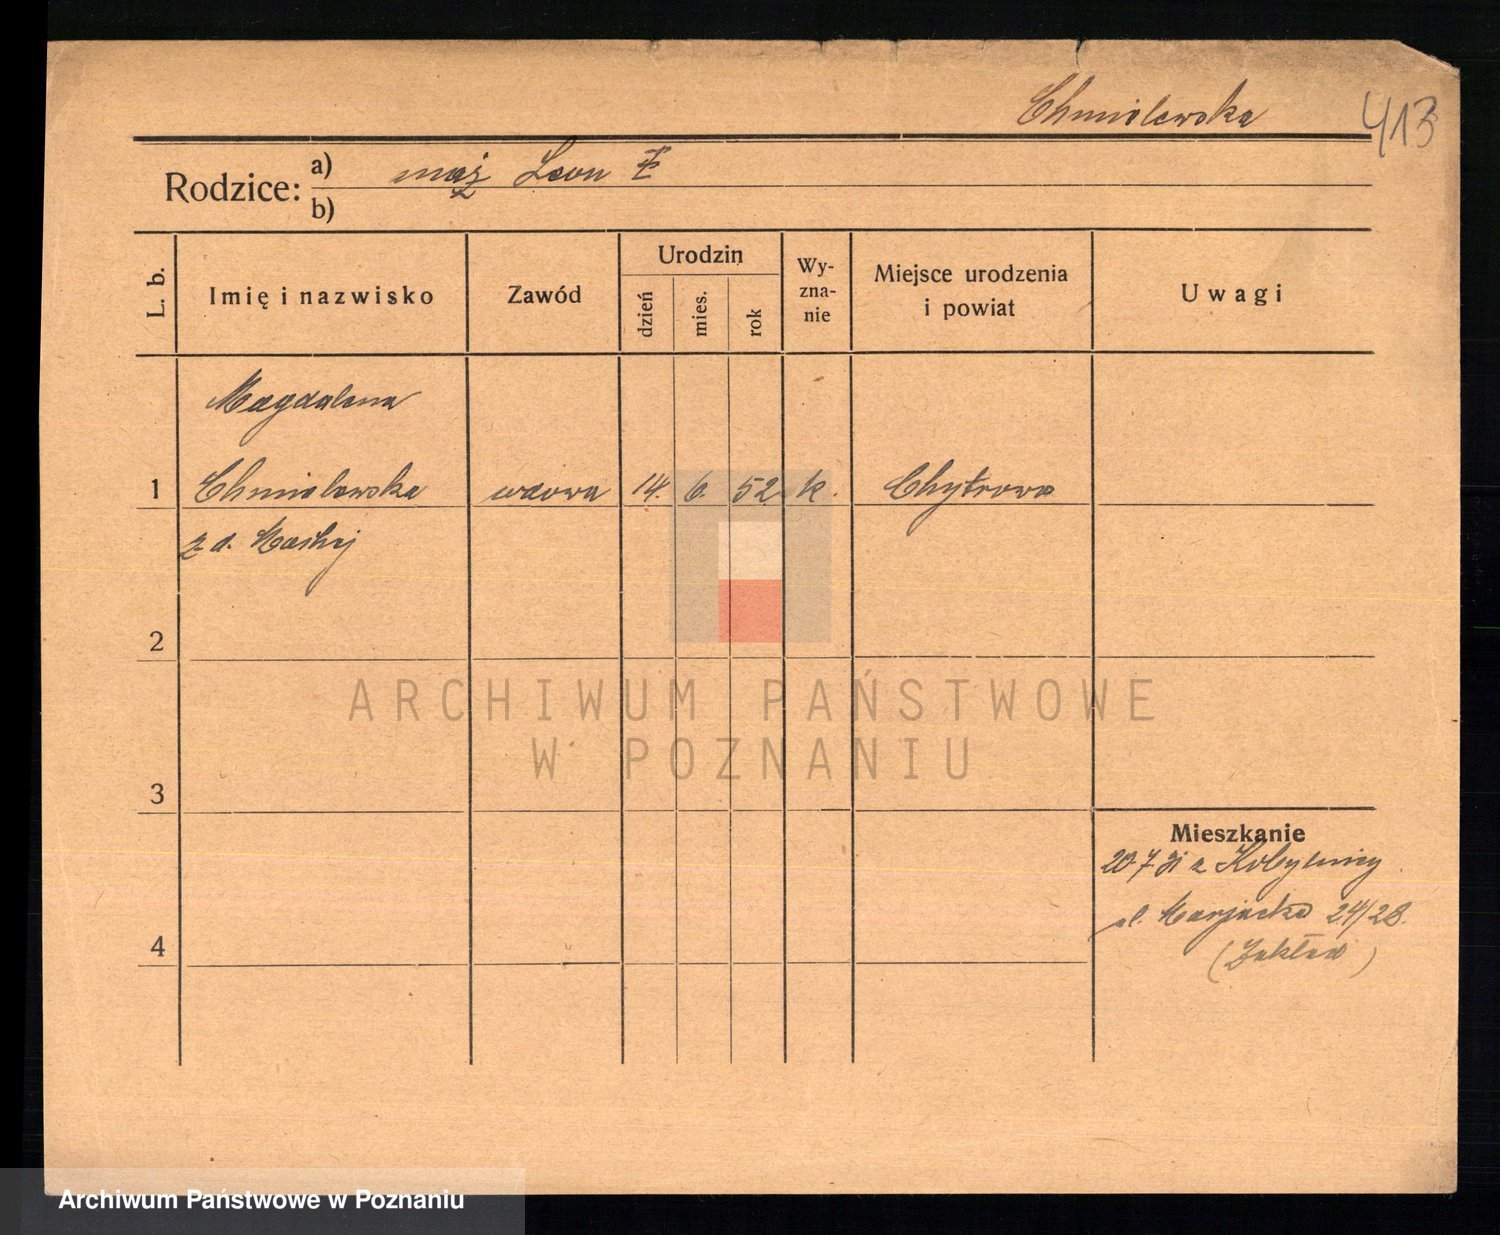 Chmielewska 413
Rodzice: a) mąż Leon
b)
L. b.
Imię i nazwisko
Zawód
Urodzin
dzień
mies.
rok
Wy-
zna-
nie
Miejsce urodzenia
i powiat
Uwagi
Magdalena
1 Chmielewska wdowa 14. 6. 52 k.
z d.
2
3
4
Mieszkanie
20.7.31 z Kobylnicy
24/28.
(Zakład)
ARCHIWUM PAŃSTWOWE
W POZNANIU
Archiwum Państwowe w Poznaniu